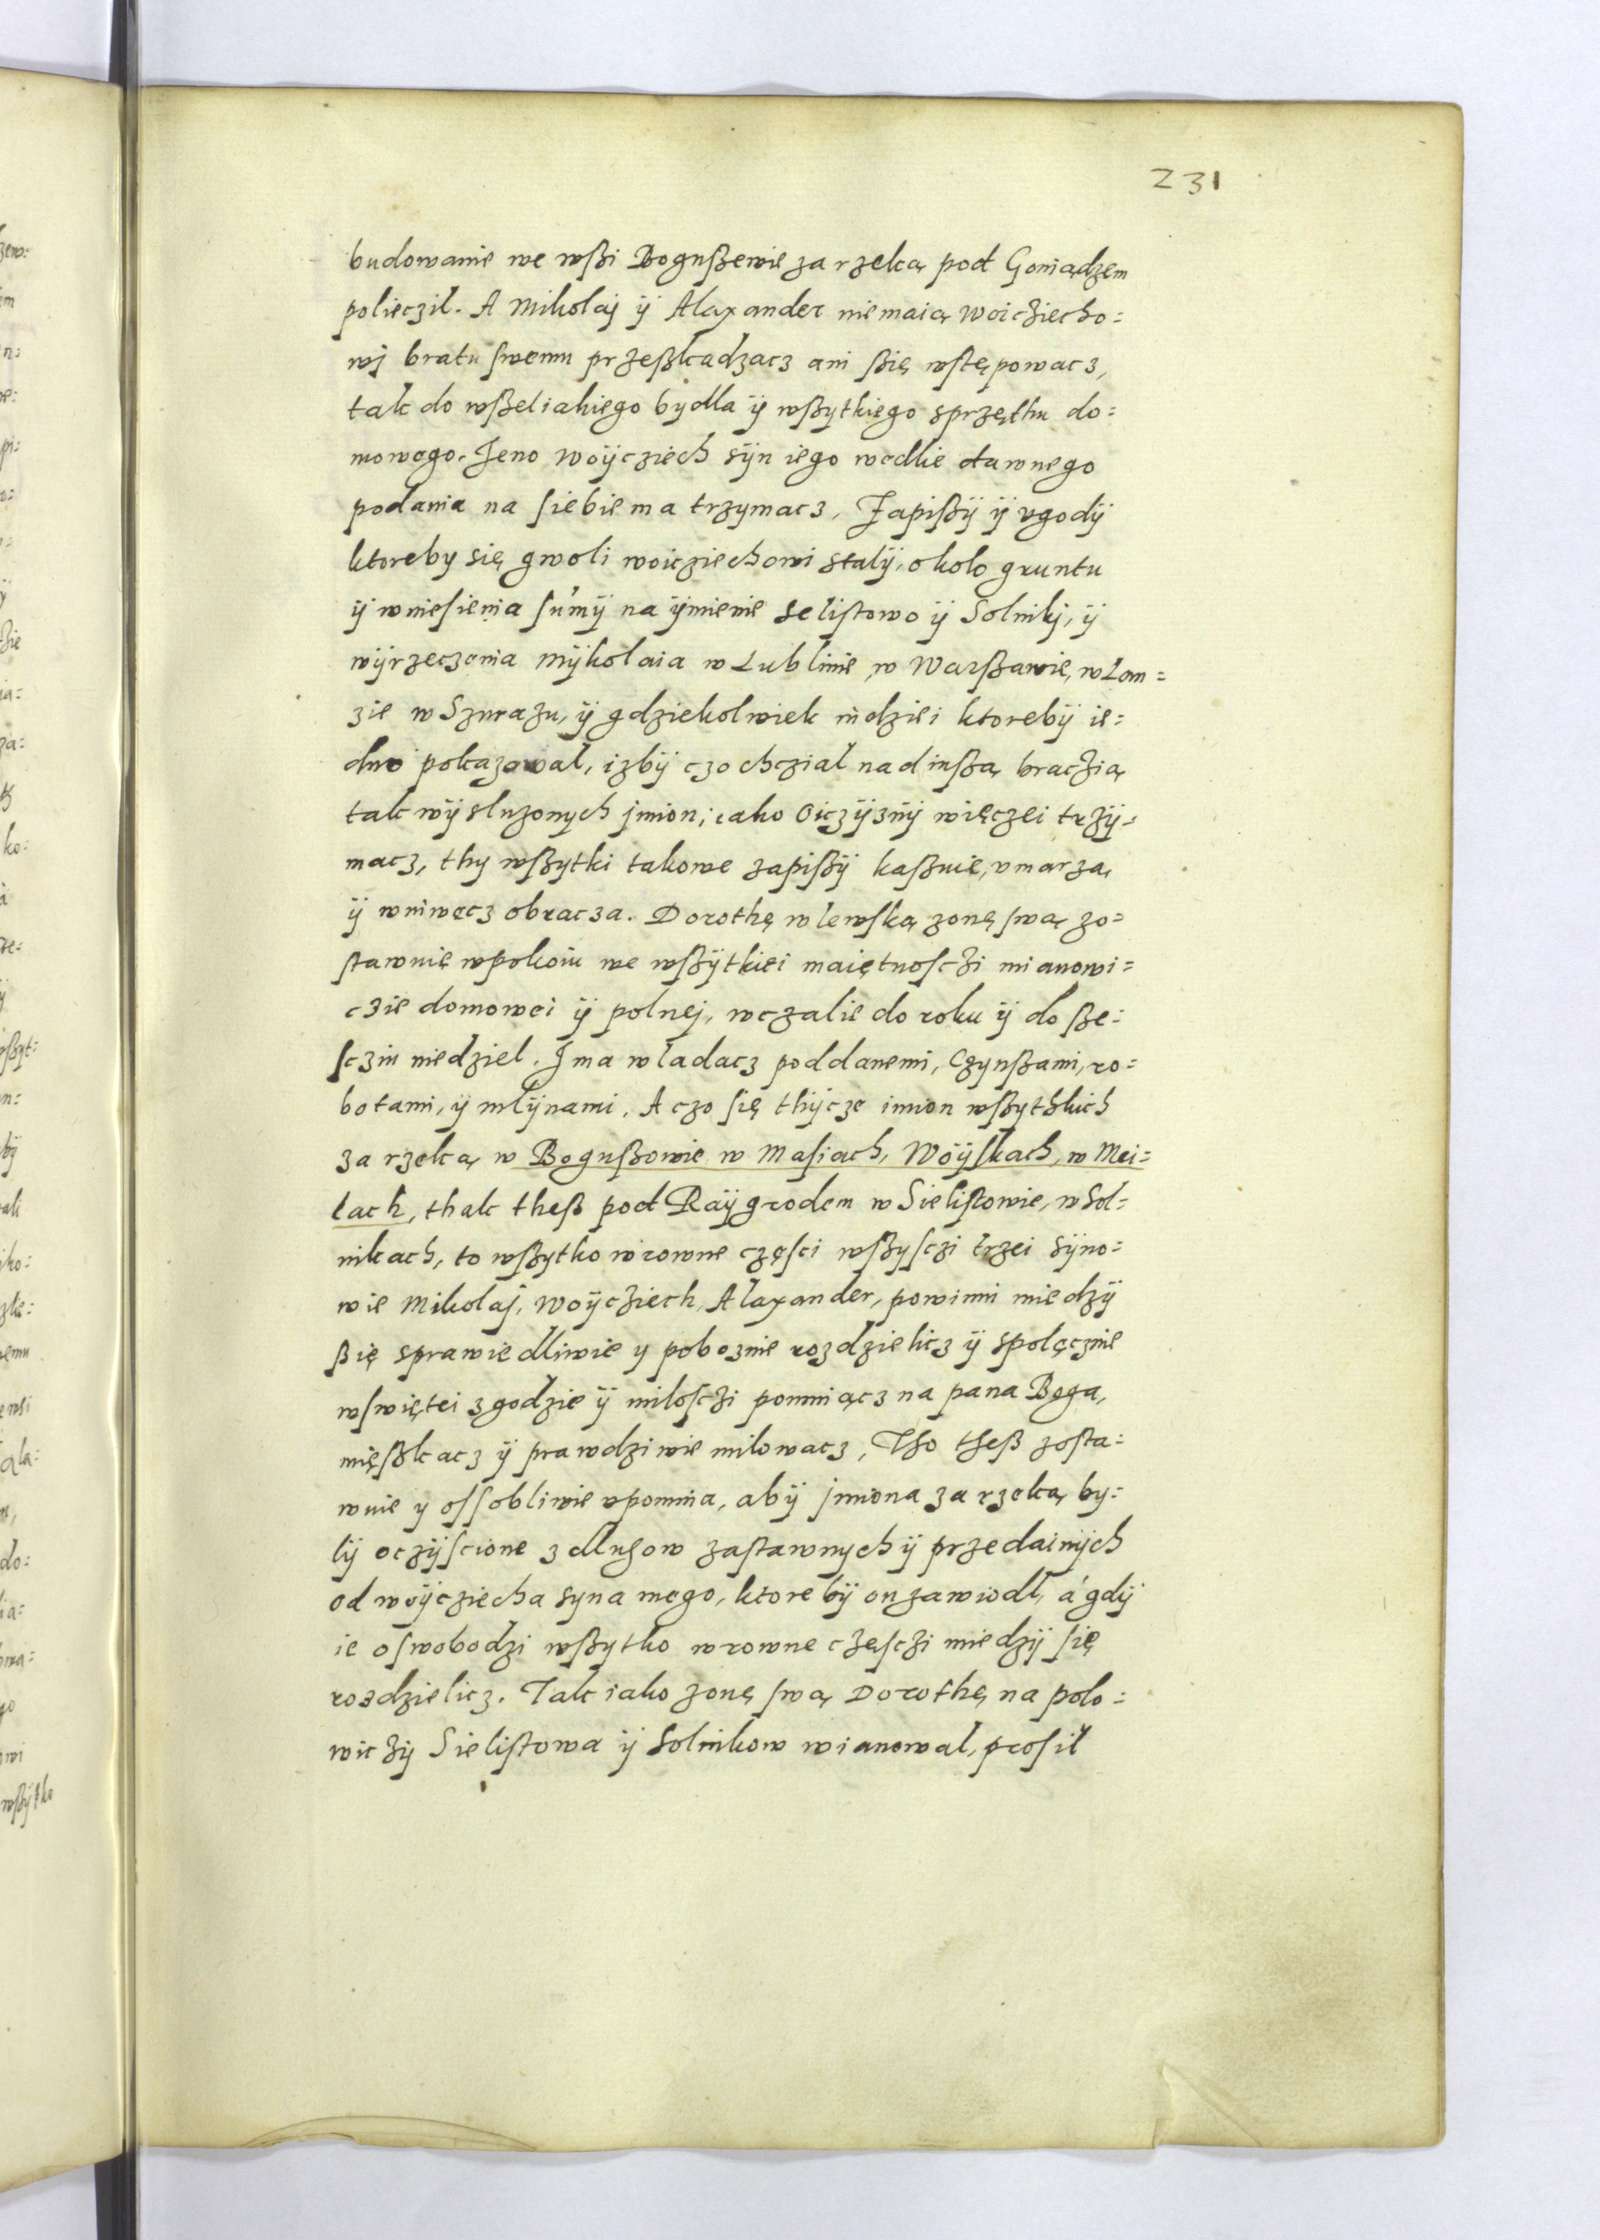 231
budowanie we wßi Bogußewie za rzeką pod Goniądzem
polieczil. A Mikolaj ÿ Alaxander niemaią Woicziecho=
wj bratu swemu przeßkadzacz ani ßię wstępowacz,
tak do wßeliakiego bydla ÿ wßytkiego sprzęthu do=
mowego. Jeno Woÿcziech sÿn iego wedlie dawnego
podania na siebie ma trzymacz. Zapißÿ ÿ vgodÿ
ktoreby się gwoli woicziechowi stalÿ, okolo gruntu
ÿ wniesienia summÿ na ÿmienie Selistowo ÿ Solnikj, ÿ
wÿrzeczenia Mÿkolaia w Lublinie, w Warßawie, w Lom=
zie w Szurazu, ÿ gdziekolwiek indziei ktorebÿ ie=
dno pokazowal, izbÿ czo chczial nad inßą braczią
tak wÿsluzonych jmion, iako oiczÿznÿ więczei trzÿ=
macz, thy wßytki takowe zapißÿ kaßuie, vmarza,
ÿ wniwecz obracza. Dorothę wlewską zonę swą zo=
stawuię wpokoiu we wßÿtkiei maiętnosczi mianowi=
czie domowei ÿ polnej, wczalie do roku ÿ do ße=
scziu niedziel. I ma wladacz poddanemi, Czynßami, ro=
botami, ÿ mlÿnami. A czo się thÿcze imion wßythkich
za rzeką w Bogußowie w Masiach, Wöÿskach, w Mei=
lach, thak theß pod Raÿgrodem w Sielistowie, w Sol=
nikach, to wßytko wrowne częsci wßysczi trzei sÿno=
wie Mikolaj, Woÿcziech, Alaxander, powinni miedzÿ
ßię sprawiedliwie y poboznie rozdzielicz ÿ spolęcznie
wswiętei zgodzie ÿ milosczi pomniącz na pana Boga,
mięßkacz ÿ prawdziwie milowacz. Tho theß zosta=
wuie y ossobliwie vpomina, abÿ jmiona za rzeką by=
lÿ oczÿscione z dlugow zastawnych ÿ przedainÿch
od woÿcziecha syna mego, ktore bÿ on zawiodl, a gdÿ
ie oswobodzi wßytko wrowne częsczi miedzÿ się
rozdzielicz. Tak iako zonę swą Dorothę na polo=
wiczÿ Sielistowa ÿ Solnikow wianowal, prosil